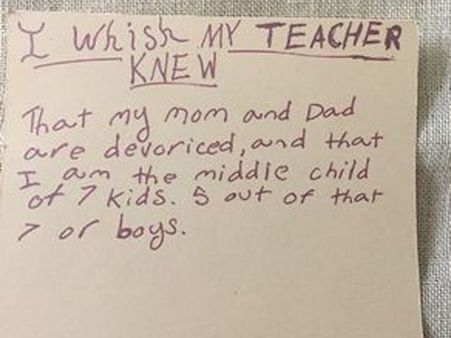 I Whish MY TEACHER
KNEW
That my mom and Dad
are devoriced, and that
I am the middle child
of 7 kids. 5 out of that
7 or boys.